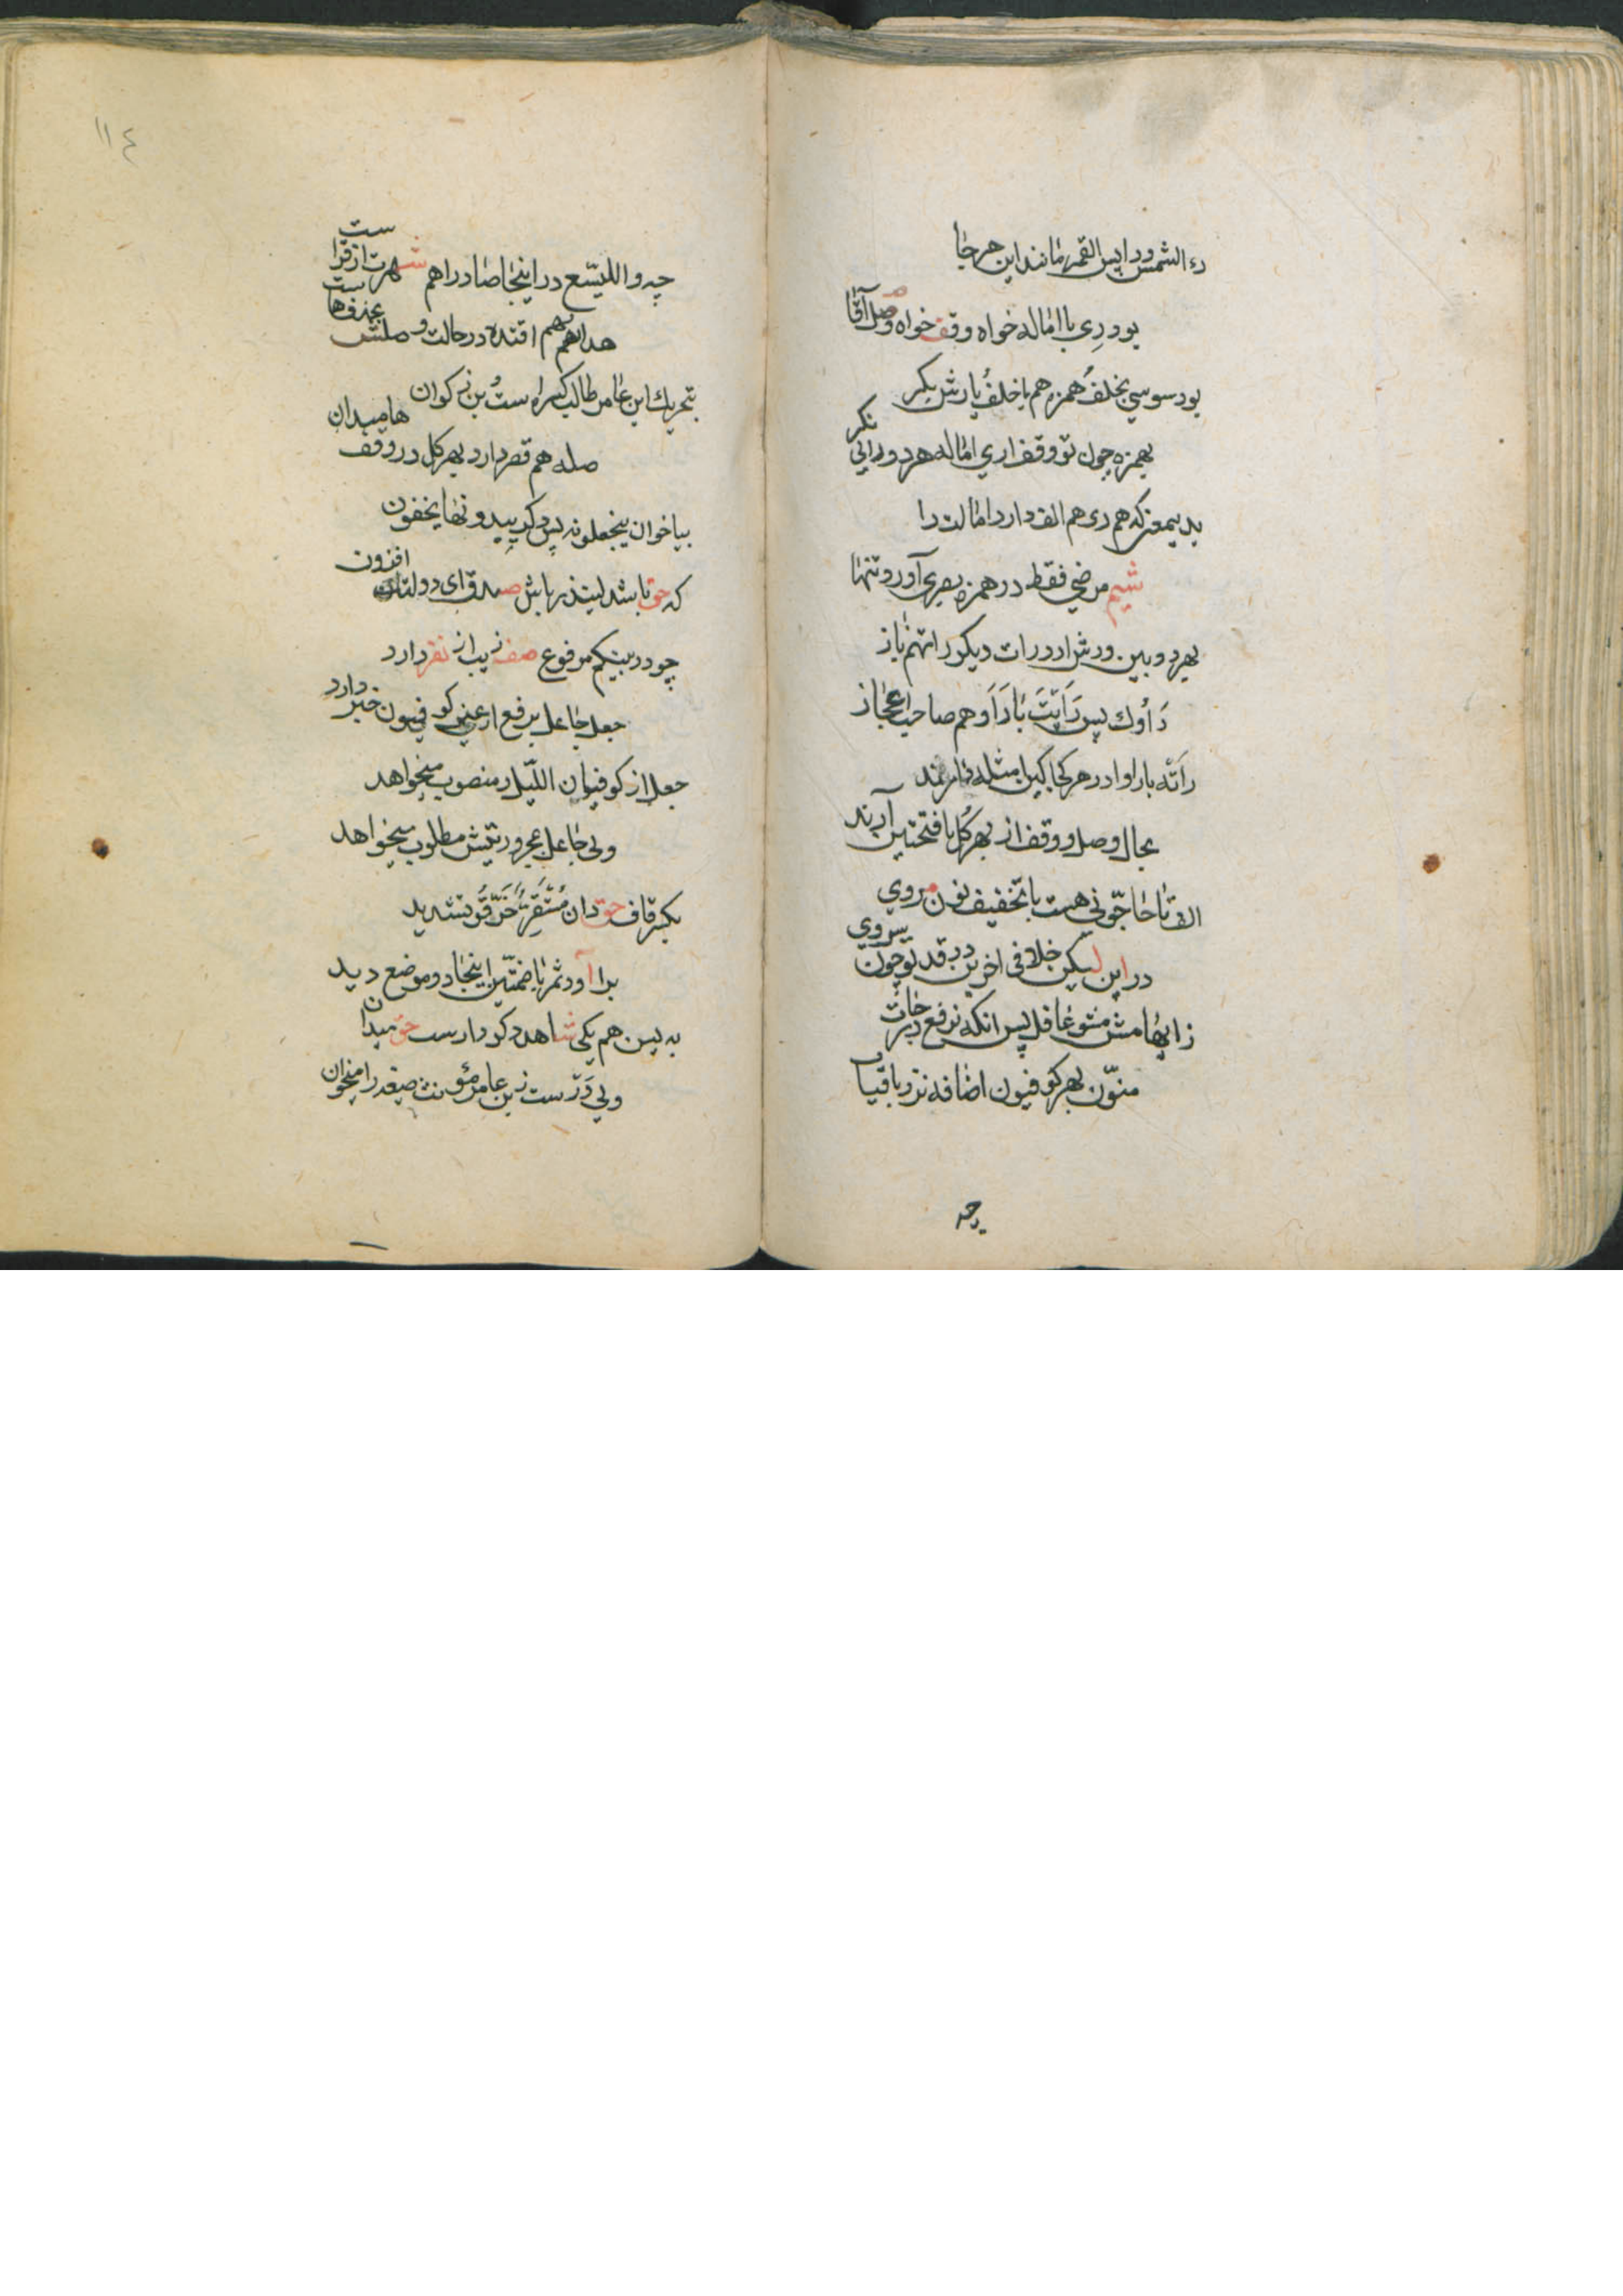 رء الشمس ورا پس القمر مانند این هر جا
بود ری با اماله خواه وقف خواه وصل آقا
بود سوسی بخلف همزه هم با خلف یارش بکر
بهمزه چون تو وقف اری اماله هر دو رایی نکر
بدیمعنی که هم ری هم الف دارد امالت را
شیم مرضی فقط در همزه بصری آورد تنها
بهر دو بین ورش ارد رات دیکر راتهم باز
رَاٰوك پس رَاَیتَ با رَاَوهم صاحب اعجاز
رَاَتْه با راوا در هر کجا کین امثله
بحال وصل و وقف از بهر کل با فتحتین آرند
الف تا حاجّونی هست با تخفیف نون مروی
در این لیکن خلافی اخرین دب قد لو چون بیروی
ز ایهامش مشو غافل پس انکه نرفع درجات
منوّن بهر کوفیون اضافه نزد باقیات
چه
١١٤
چه واللیسّع در اینجا صاد را هم شهرت از قراست
هداهم بهم اقتده در حالت وصلش بحذف هاست
بتحریك ابن عامر طالب کسر است بن ذکوان
صله هم قصر دارد بهر کل در وقف ها میدان
بیا خوان یجعلونه پس دکر یبدونها یخفون
که حق باشد لینذر باش صدق ای دولتت افزون
چو در بینکم مرفوع صفه زیب از نفر دارد
جعل جاعل برفع ار عین کوفیون خبر دارد
جعل از کوفیان اللّیل منصوب میخواهد
ولی جاعل مجرور تیش مطلوب میخواهد
بکسر قاف حق دان مُسْتَقِرٌّ خَرَّقُو تشدید
برا آورد ثمر با ضمتّین اینجا دو موضع دید
به یس هم یکی شاهد دکر دارست حق میدان
ولی دَرَسَت ز بن عامر مؤنث صیغه را میخوان